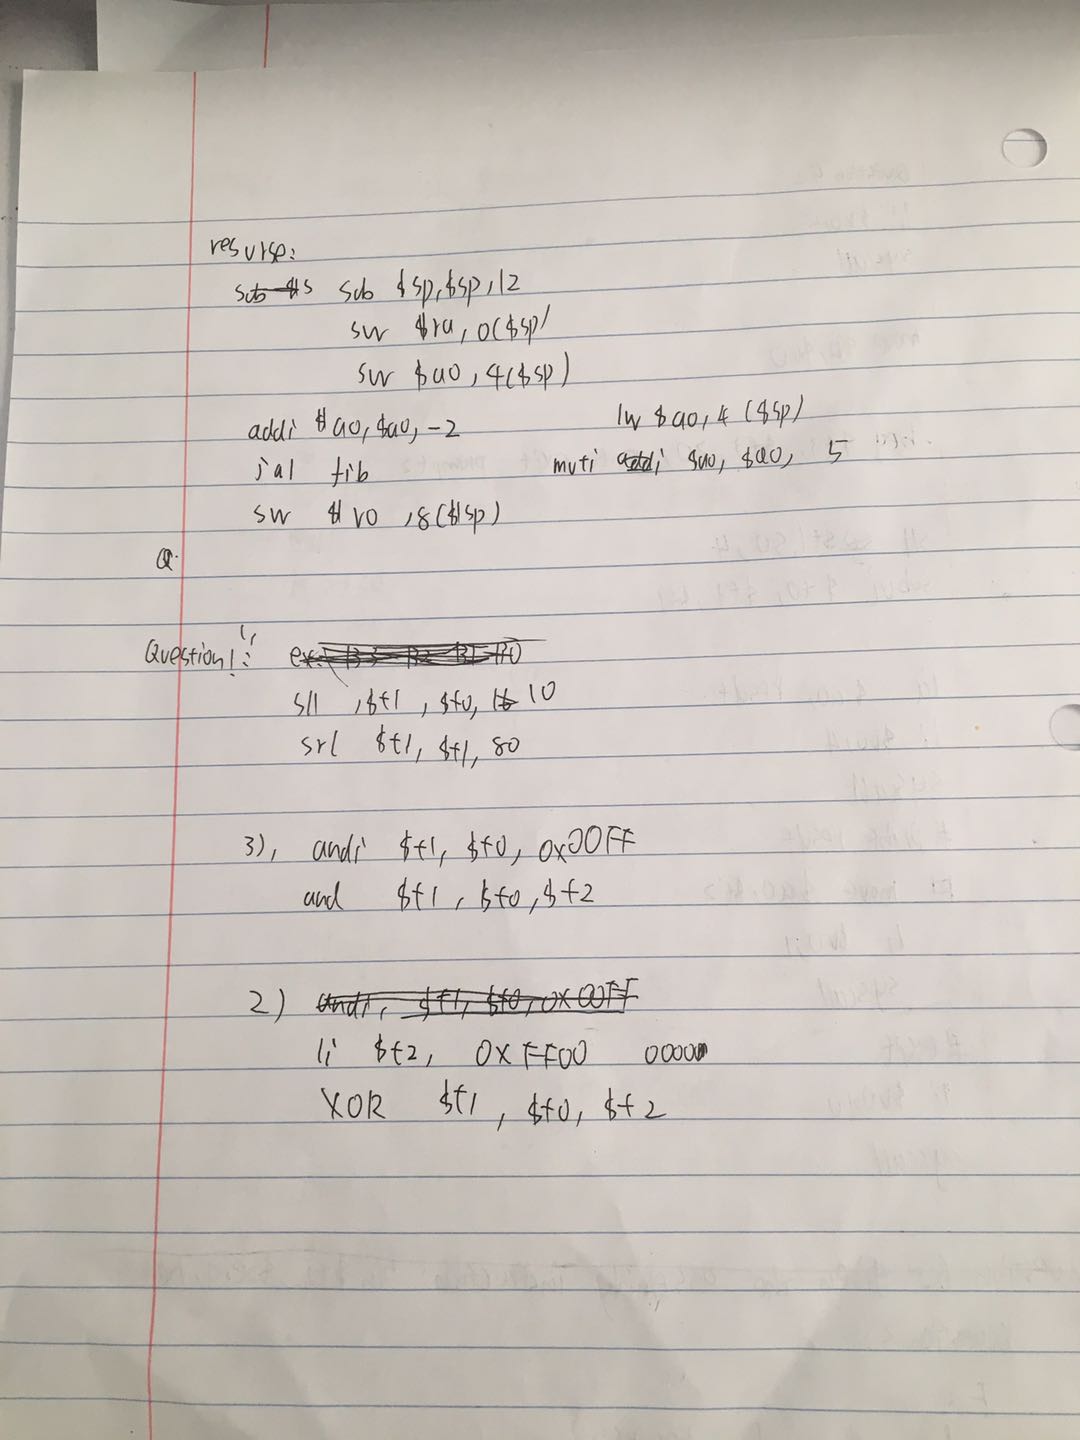 resurse:
sub $s sub $sp,$sp,12
sw $ra, 0($sp)
sw $a0, 4($sp)
addi $a0, $a0, -2
jal fib
sw $v0, 8($sp)
lw $a0, 4($sp)
muti addi $a0, $a0, 5
Q.
Question 1:
sll , $t1 , $t0, 16 10
srl $t1, $t1, 80
3), andi $t1, $t0, 0x00FF
and $t1, $t0, $t2
2) andi, $t1, $t0, 0x00FF
li $t2, 0xFF00 0000
XOR $t1, $t0, $t2